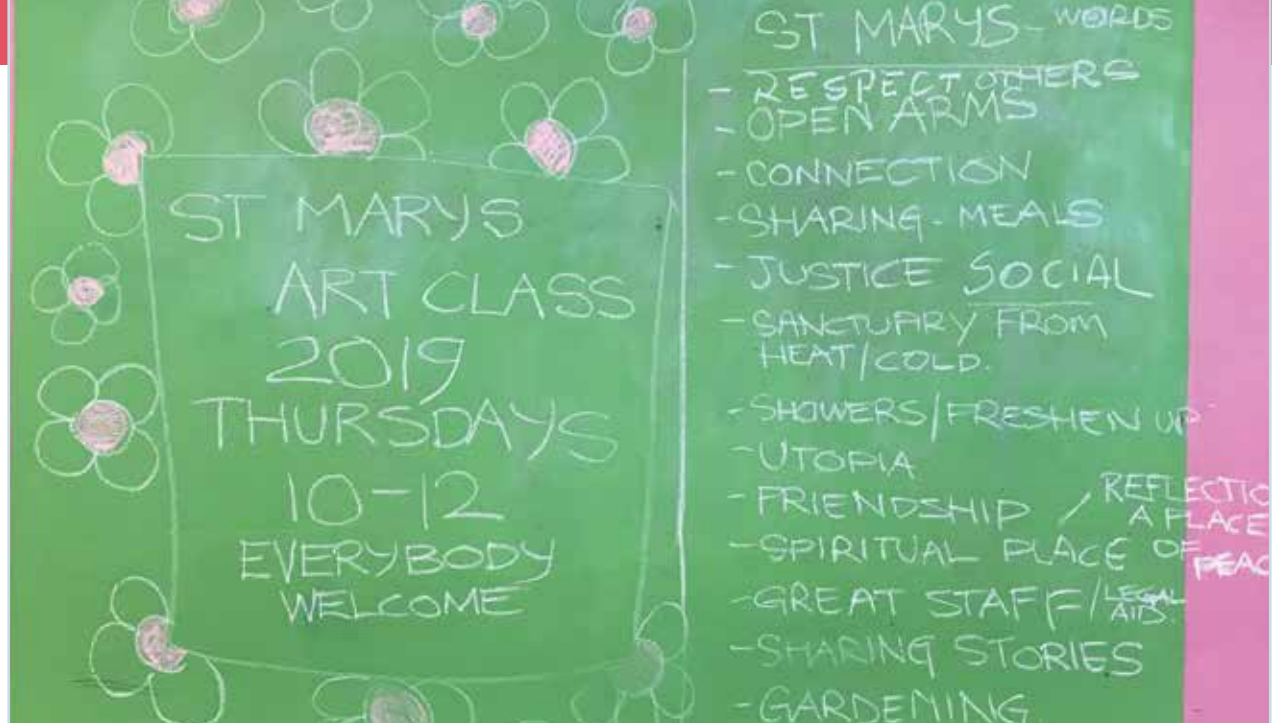 ST MARYS
ART CLASS
2019
THURSDAYS
10-12
EVERYBODY
WELCOME
ST MARYS - WORDS
- RESPECT OTHERS
- OPEN ARMS
- CONNECTION
- SHARING - MEALS
- JUSTICE SOCIAL
- SANCTUARY FROM
HEAT/COLD.
- SHOWERS/FRESHEN UP
- UTOPIA
- FRIENDSHIP / REFLECTIO
A PLACE
- SPIRITUAL PLACE OF PEAC
- GREAT STAFF/LEGAL
AID.
- SHARING STORIES
- GARDENING